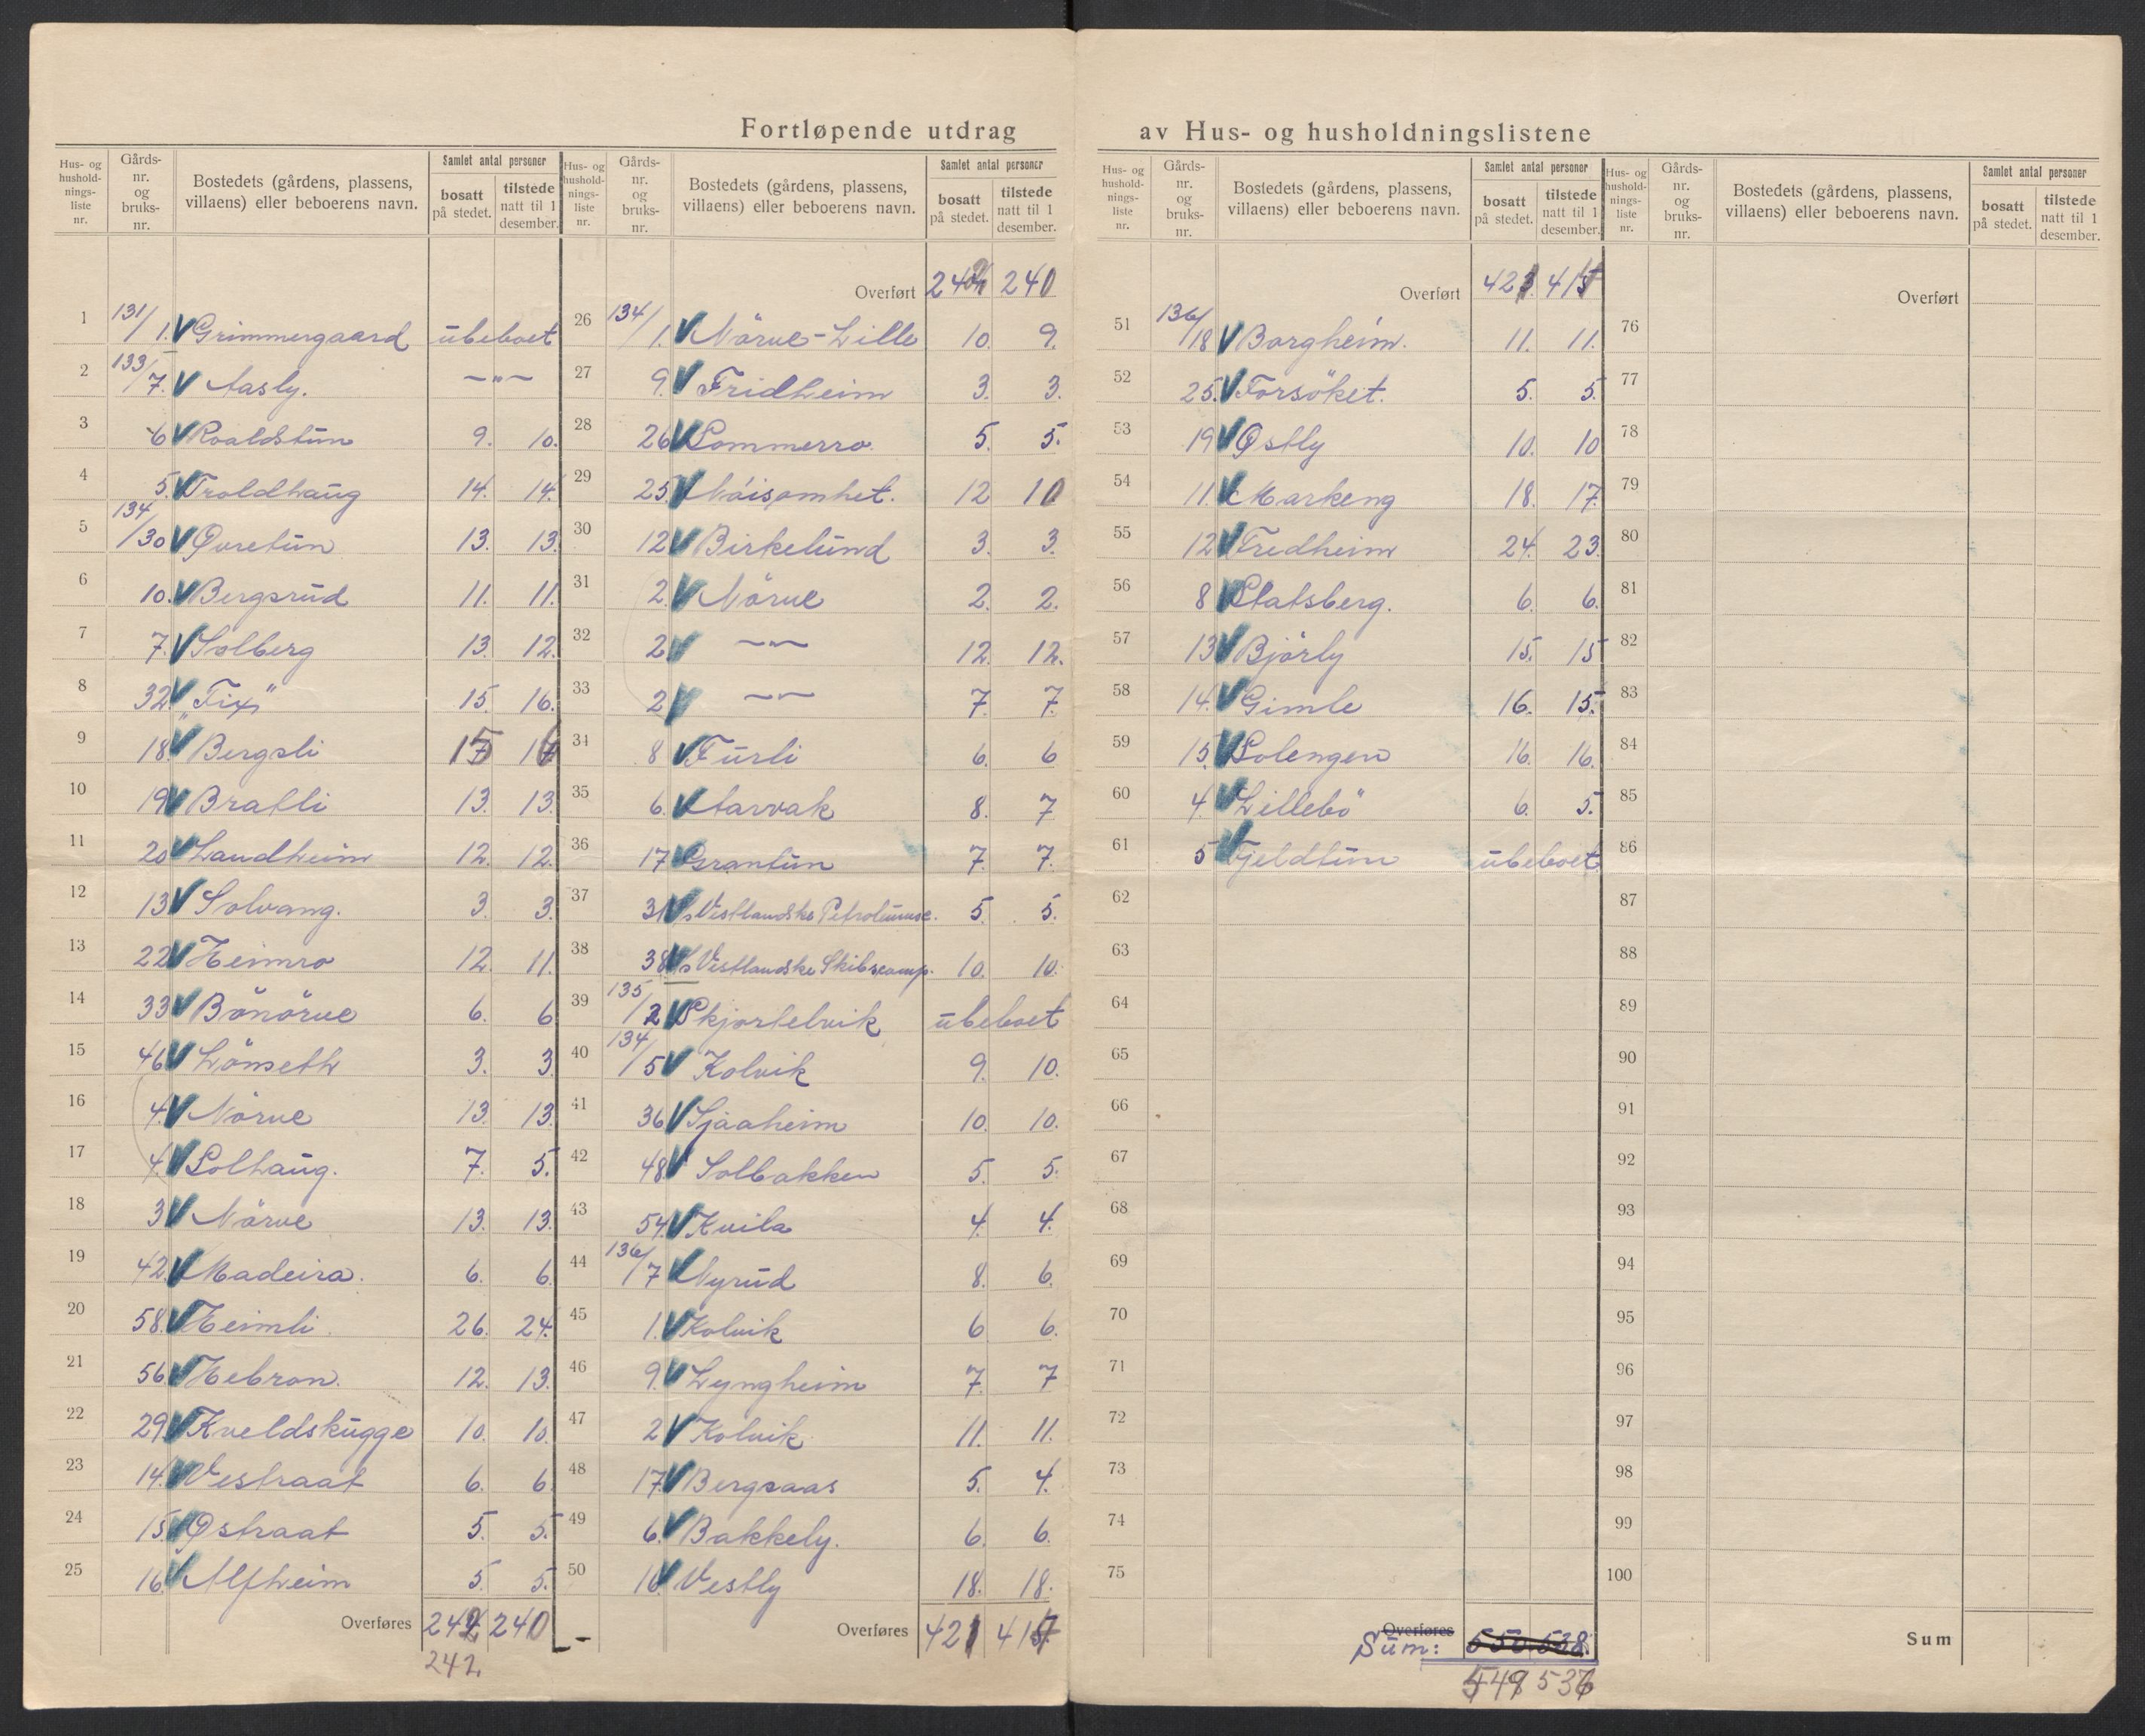 Fortløpende utdrag av Hus- og husholdningslistene
Hus- og husholdningsliste nr. | Gårds-nr. og bruks-nr. | Bostedets (gårdens, plassens, villaens) eller beboerens navn. | Samlet antal personer | bosatt på stedet. | tilstede natt til 1 desember.
1 131/1. V Grimmergaard ubeboet
2 133/7. V Aasly. —"—
3 6 V Roaldstun 9. 10.
4 5. V Troldhaug 14. 14.
5 134/30 V Øvretun 13. 13.
6 10. V Bergsrud 11. 11.
7 7. V Solberg 13. 12.
8 32. V „Fix" 15. 16.
9 18. V Bergsli 15
10 19 V Bratli 13. 13.
11 20 V Landheim 12. 12.
12 13 V Solvang. 3. 3.
13 22 V Heimro 12. 11.
14 33 V Bönörve 6. 6
15 46 V Lönseth 3. 3.
16 4. V Nörve 13. 13.
17 4. V Solhaug. 7. 5.
18 3 V Nörve 13. 13.
19 42. V Madeira. 6. 6.
20 58. V Heimli. 26. 24.
21 56. V Hebron. 12. 13.
22 29. V Kveldskugge 10. 10.
23 14. V Vestraat 6. 6.
24 15. V Østraat 5. 5.
25 16. V Alfheim 5. 5.
Overføres 242 240
242.
Hus- og husholdningsliste nr. | Gårds-nr. og bruks-nr. | Bostedets (gårdens, plassens, villaens) eller beboerens navn. | Samlet antal personer | bosatt på stedet. | tilstede natt til 1 desember.
Overført 240
26 134/1. V Nörve-Lille 10. 9.
27 9. V Fridheim 3. 3.
28 26 V Sommerro 5. 5.
29 25 V Nöisomhet. 12 10
30 12 V Birkelund 3. 3.
31 2. V Nörve 2. 2.
32 2 V —"— 12. 12.
33 2 V —"— 7. 7.
34 8 V Furli 6. 6
35 6. V Aarvak 8. 7
36 17 V Grantun 7. 7.
37 31 V Vestlandske Petroleumsc. 5. 5.
38 38 V Vestlandske Skibscomp. 10. 10.
39 135/2 V Skjortelvik ubeboet
40 134/5 V Kolvik 9. 10.
41 36 V Sjaaheim 10. 10.
42 48 V Solbakken 5. 5.
43 54. V Kvila 4. 4.
44 136/7 V Nyrud 8. 6.
45 1. V Kolvik 6 6.
46 9. V Lyngheim 7. 7
47 2 V Kolvik 11. 11.
48 17. V Bergsaas 5. 4.
49 6. V Bakkely. 6. 6.
50 16 V Vestly 18. 18.
Overføres 421
Hus- og husholdningsliste nr. | Gårds-nr. og bruks-nr. | Bostedets (gårdens, plassens, villaens) eller beboerens navn. | Samlet antal personer | bosatt på stedet. | tilstede natt til 1 desember.
Overført 421 415
51 136/18 V Borgheim. 11. 11.
52 25. V Forsöket. 5. 5.
53 19 V Østly 10. 10
54 11. V Markeng 18. 17.
55 12 V Fredheim 24. 23.
56 8 V Statsberg. 6. 6.
57 13 V Björly 15. 15
58 14. V Gimle 16. 15.
59 15. V Solengen 16. 16.
60 4. V Lillebö 6. 5.
61 5 V Fjeldtun ubeboet
62
63
64
65
66
67
68
69
70
71
72
73
74
75
Overføres
Sum: 550 538.
549 536
Hus- og husholdningsliste nr. | Gårds-nr. og bruks-nr. | Bostedets (gårdens, plassens, villaens) eller beboerens navn. | Samlet antal personer | bosatt på stedet. | tilstede natt til 1 desember.
Overført
76
77
78
79
80
81
82
83
84
85
86
87
88
89
90
91
92
93
94
95
96
97
98
99
100
Sum